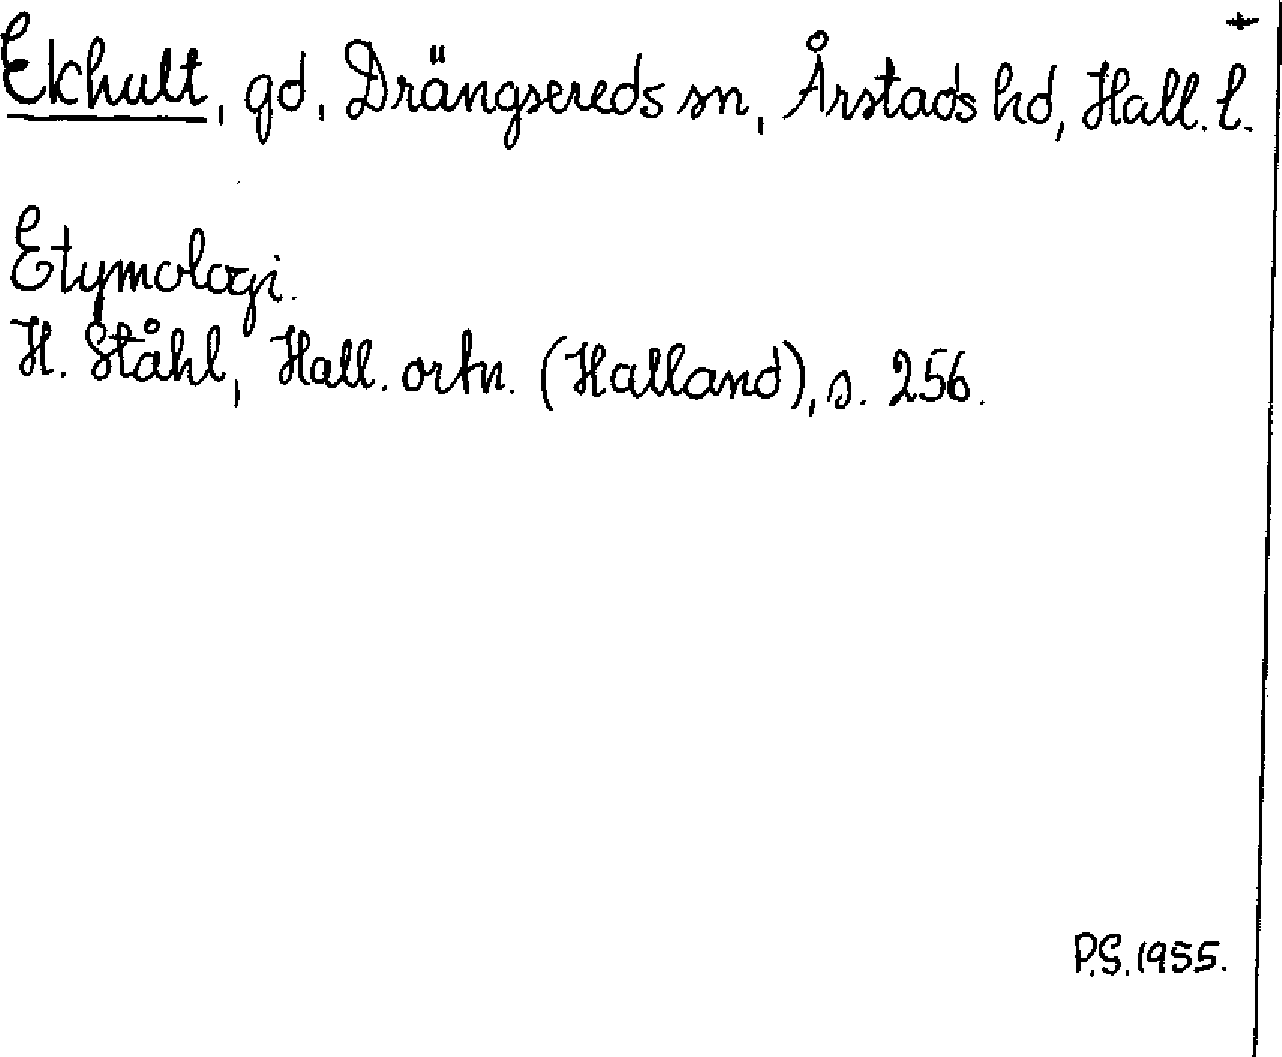 Ekhult, gd, Drängsereds sn, Årstads hd, Hall. l.
Etymologi.
H. Ståhl, Hall. ortn. (Halland), s. 256.
P.S. 1955.